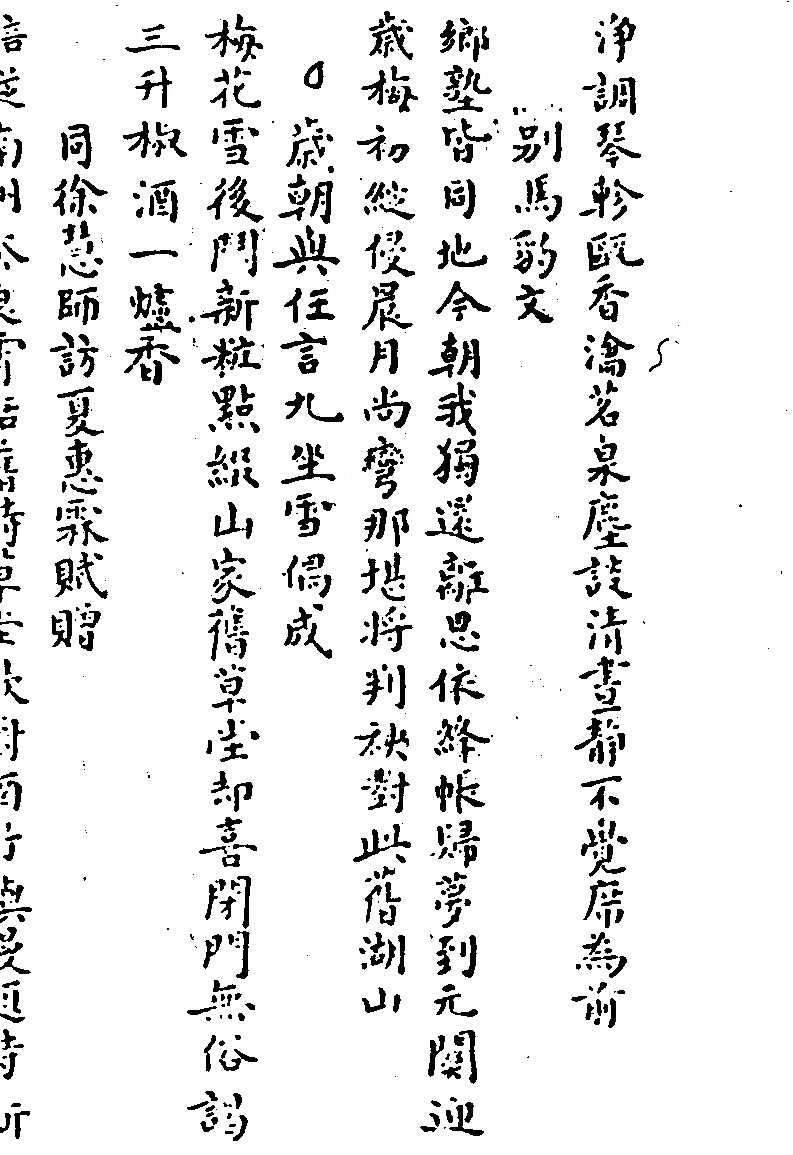 淨調琴軫甌香瀹茗泉塵談清晝靜不覺席為前
別馬豹文
鄉塾皆同地今朝我獨還離思依絳帳歸夢到元關迎
歲梅初綻侵晨月尚彎那堪將判袂對此舊湖山
歲朝與任言九坐雪偶成
梅花雪後鬥新粧點綴山家舊草堂却喜閉門無俗謁
三升椒酒一爐香
同徐慧師訪夏惠霖賦贈